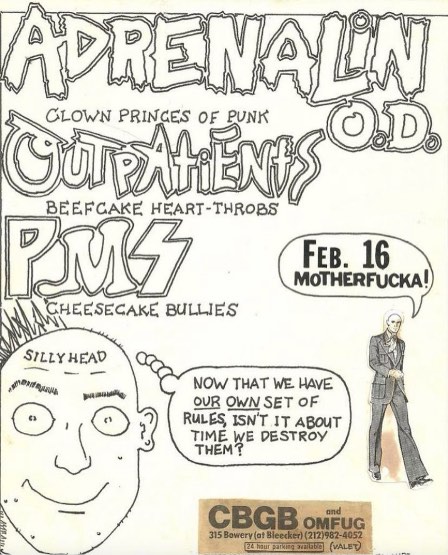 ADRENALIN
O.D.
CLOWN PRINCES OF PUNK
OUTPATIENTS
BEEFCAKE HEART-THROBS
PMS
CHEESECAKE BULLIES
FEB. 16
MOTHERFUCKA!
SILLYHEAD
NOW THAT WE HAVE
OUR OWN SET OF
RULES, ISN'T IT ABOUT
TIME WE DESTROY
THEM?
CBGB and OMFUG
315 Bowery (at Bleecker) (212)982-4052
24 hour parking available (VALET)